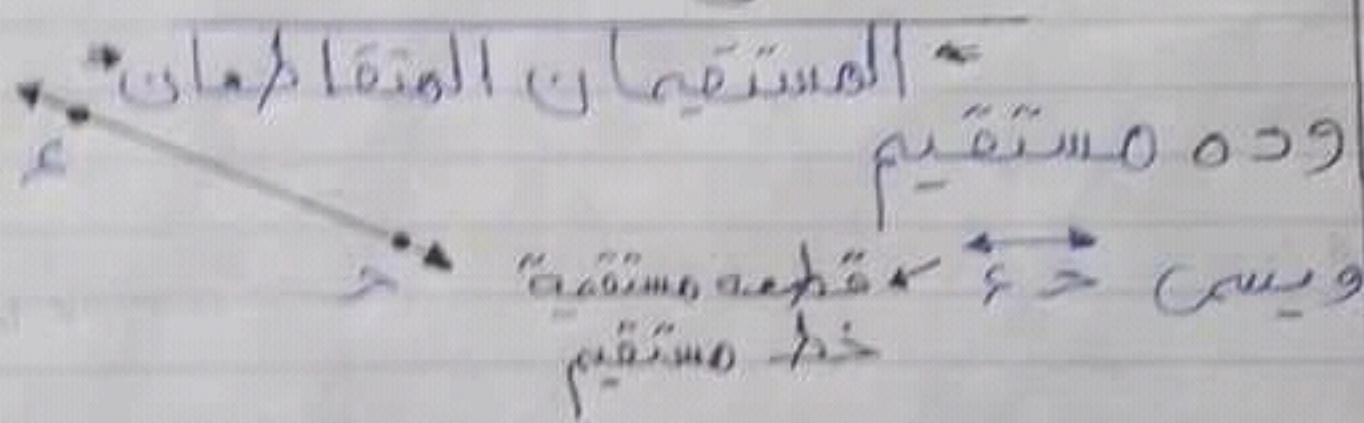 المستقيمان المتقاطعان
وده مستقيم
ء
ويسى حـ ء قطعه مستقيمة
حـ
خط مستقيم